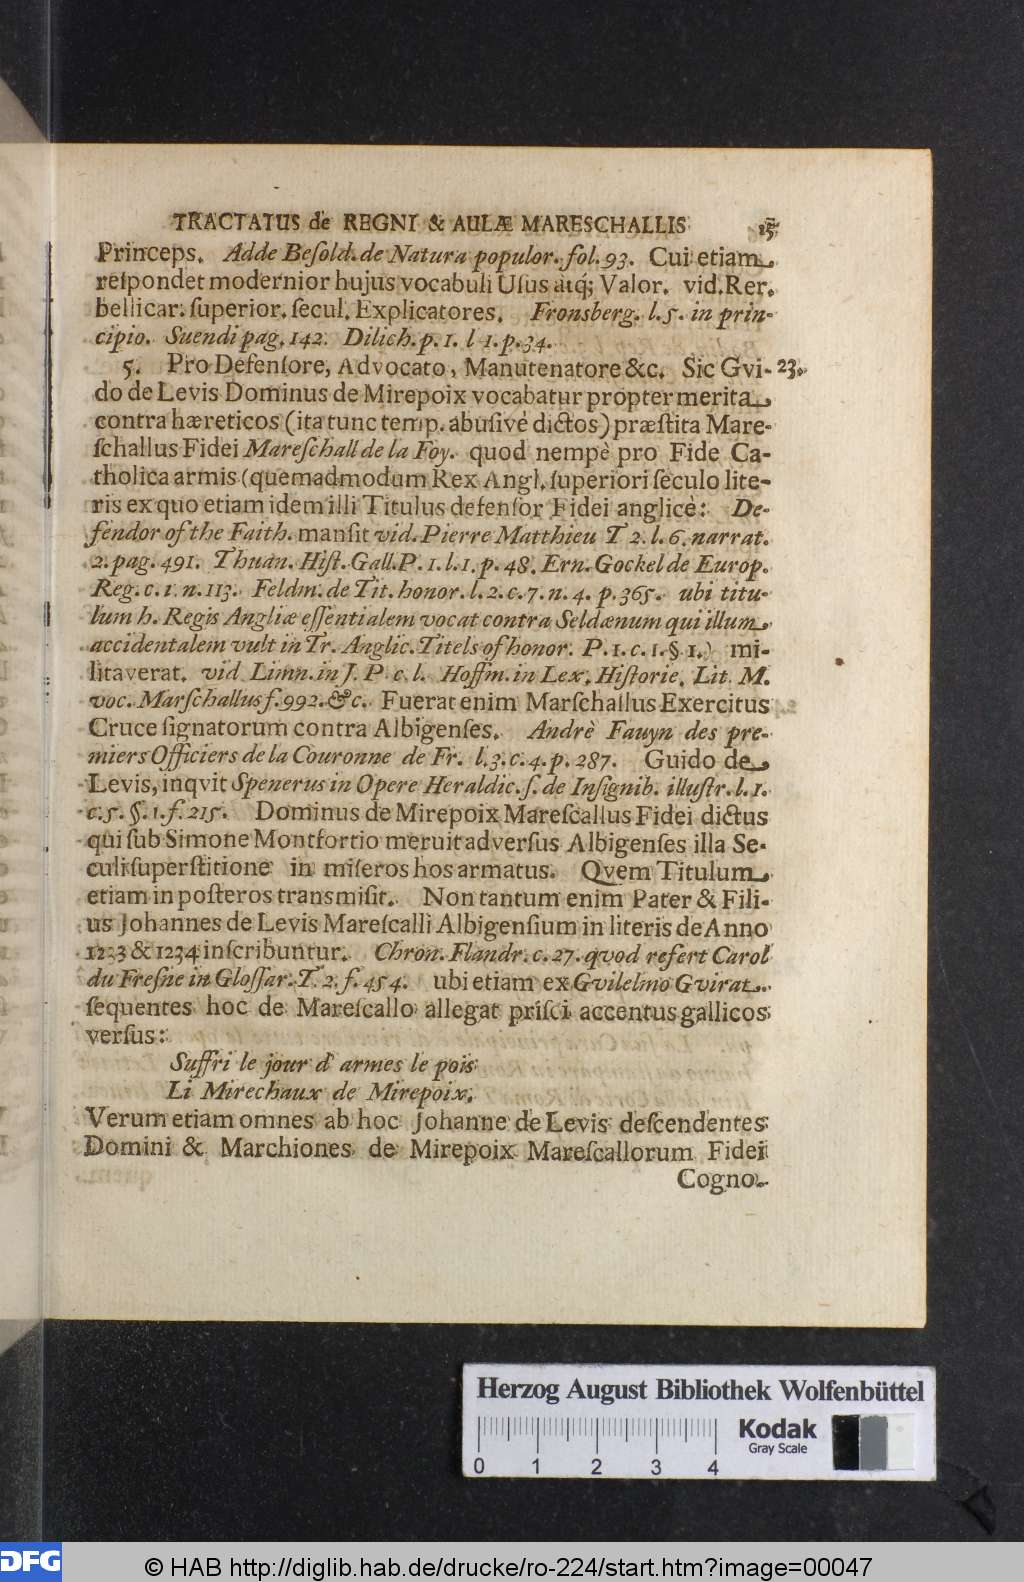 TRACTATUS de REGNI & AULÆ MARESCHALLIS 15
Princeps. Adde Beſold. de Natura populor. fol. 93. Cui etiam
reſpondet modernior hujus vocabuli Uſus atq́; Valor. vid. Rer.
bellicar. ſuperior. ſecul. Explicatores. Fronsberg. l. 5. in prin-
cipio. Suendi pag. 142. Dilich. p. 1. l 1. p. 34.
5. Pro Defenſore, Advocato, Manutenatore &c. Sic Gvi- 23.
do de Levis Dominus de Mirepoix vocabatur propter merita
contra hæreticos (ita tunc temp. abuſivé dictos) præſtita Mare-
ſchallus Fidei Mareſchall de la Foy. quod nempè pro Fide Ca-
tholica armis (quemadmodum Rex Angl. ſuperiori ſeculo lite-
ris ex quo etiam idem illi Titulus defenſor Fidei anglicè: De-
fendor of the Faith. manſit vid. Pierre Matthieu T 2. l. 6. narrat.
2. pag. 491. Thuan. Hiſt. Gall. P. 1. l. 1. p. 48. Ern. Gockel de Europ.
Reg. c. 1. n. 113. Feldm. de Tit. honor. l. 2. c. 7. n. 4. p. 365. ubi titu-
lum h. Regis Angliæ eſſentialem vocat contra Seldænum qui illum
accidentalem vult in Tr. Anglic. Titels of honor. P. 1. c. 1. § 1.) mi-
litaverat. vid Limn. in J. P c. l. Hoffm. in Lex. Hiſtorie. Lit. M.
voc. Marſchallus f. 992. &c. Fuerat enim Marſchallus Exercitus
Cruce ſignatorum contra Albigenſes. Andrè Fauyn des pre-
miers Officiers de la Couronne de Fr. l. 3. c. 4. p. 287. Guido de
Levis, inqvit Spenerus in Opere Heraldic. ſ. de Inſignib. illuſtr. l. 1.
c. 5. §. 1. f. 215. Dominus de Mirepoix Mareſcallus Fidei dictus
qui ſub Simone Montfortio meruit adverſus Albigenſes illa Se-
culi ſuperſtitione in miſeros hos armatus. Qvem Titulum
etiam in poſteros transmiſit. Non tantum enim Pater & Fili-
us Johannes de Levis Mareſcalli Albigenſium in literis de Anno
1233 & 1234 inſcribuntur. Chron. Flandr. c. 27. qvod refert Carol
du Freſne in Gloſſar. T. 2. f. 454. ubi etiam ex Gvilelmo Gvirat
ſequentes hoc de Mareſcallo allegat priſci accentus gallicos
verſus:
Suffri le jour d' armes le pois
Li Mirechaux de Mirepoix.
Verum etiam omnes ab hoc Johanne de Levis deſcendentes
Domini & Marchiones de Mirepoix Mareſcallorum Fidei
Cogno-
Herzog August Bibliothek Wolfenbüttel
Kodak
Gray Scale
0 1 2 3 4
DFG © HAB http://diglib.hab.de/drucke/ro-224/start.htm?image=00047